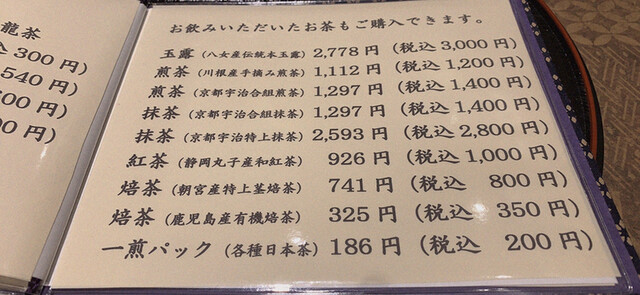 龍茶
300円)
540円)
00円)
00円)
お飲みいただいたお茶もご購入できます。
玉露(八女産伝統本玉露)2,778円(税込3,000円)
煎茶(川根産手摘み煎茶)1,112円(税込1,200円)
煎茶(京都宇治合組煎茶)1,297円(税込1,400円)
抹茶(京都宇治合組抹茶)1,297円(税込1,400円)
抹茶(京都宇治特上抹茶)2,593円(税込2,800円)
紅茶(静岡丸子産和紅茶)926円(税込1,000円)
焙茶(朝宮産特上茎焙茶)741円(税込 800円)
焙茶(鹿児島産有機焙茶)325円(税込 350円)
一煎パック(各種日本茶)186円(税込 200円)